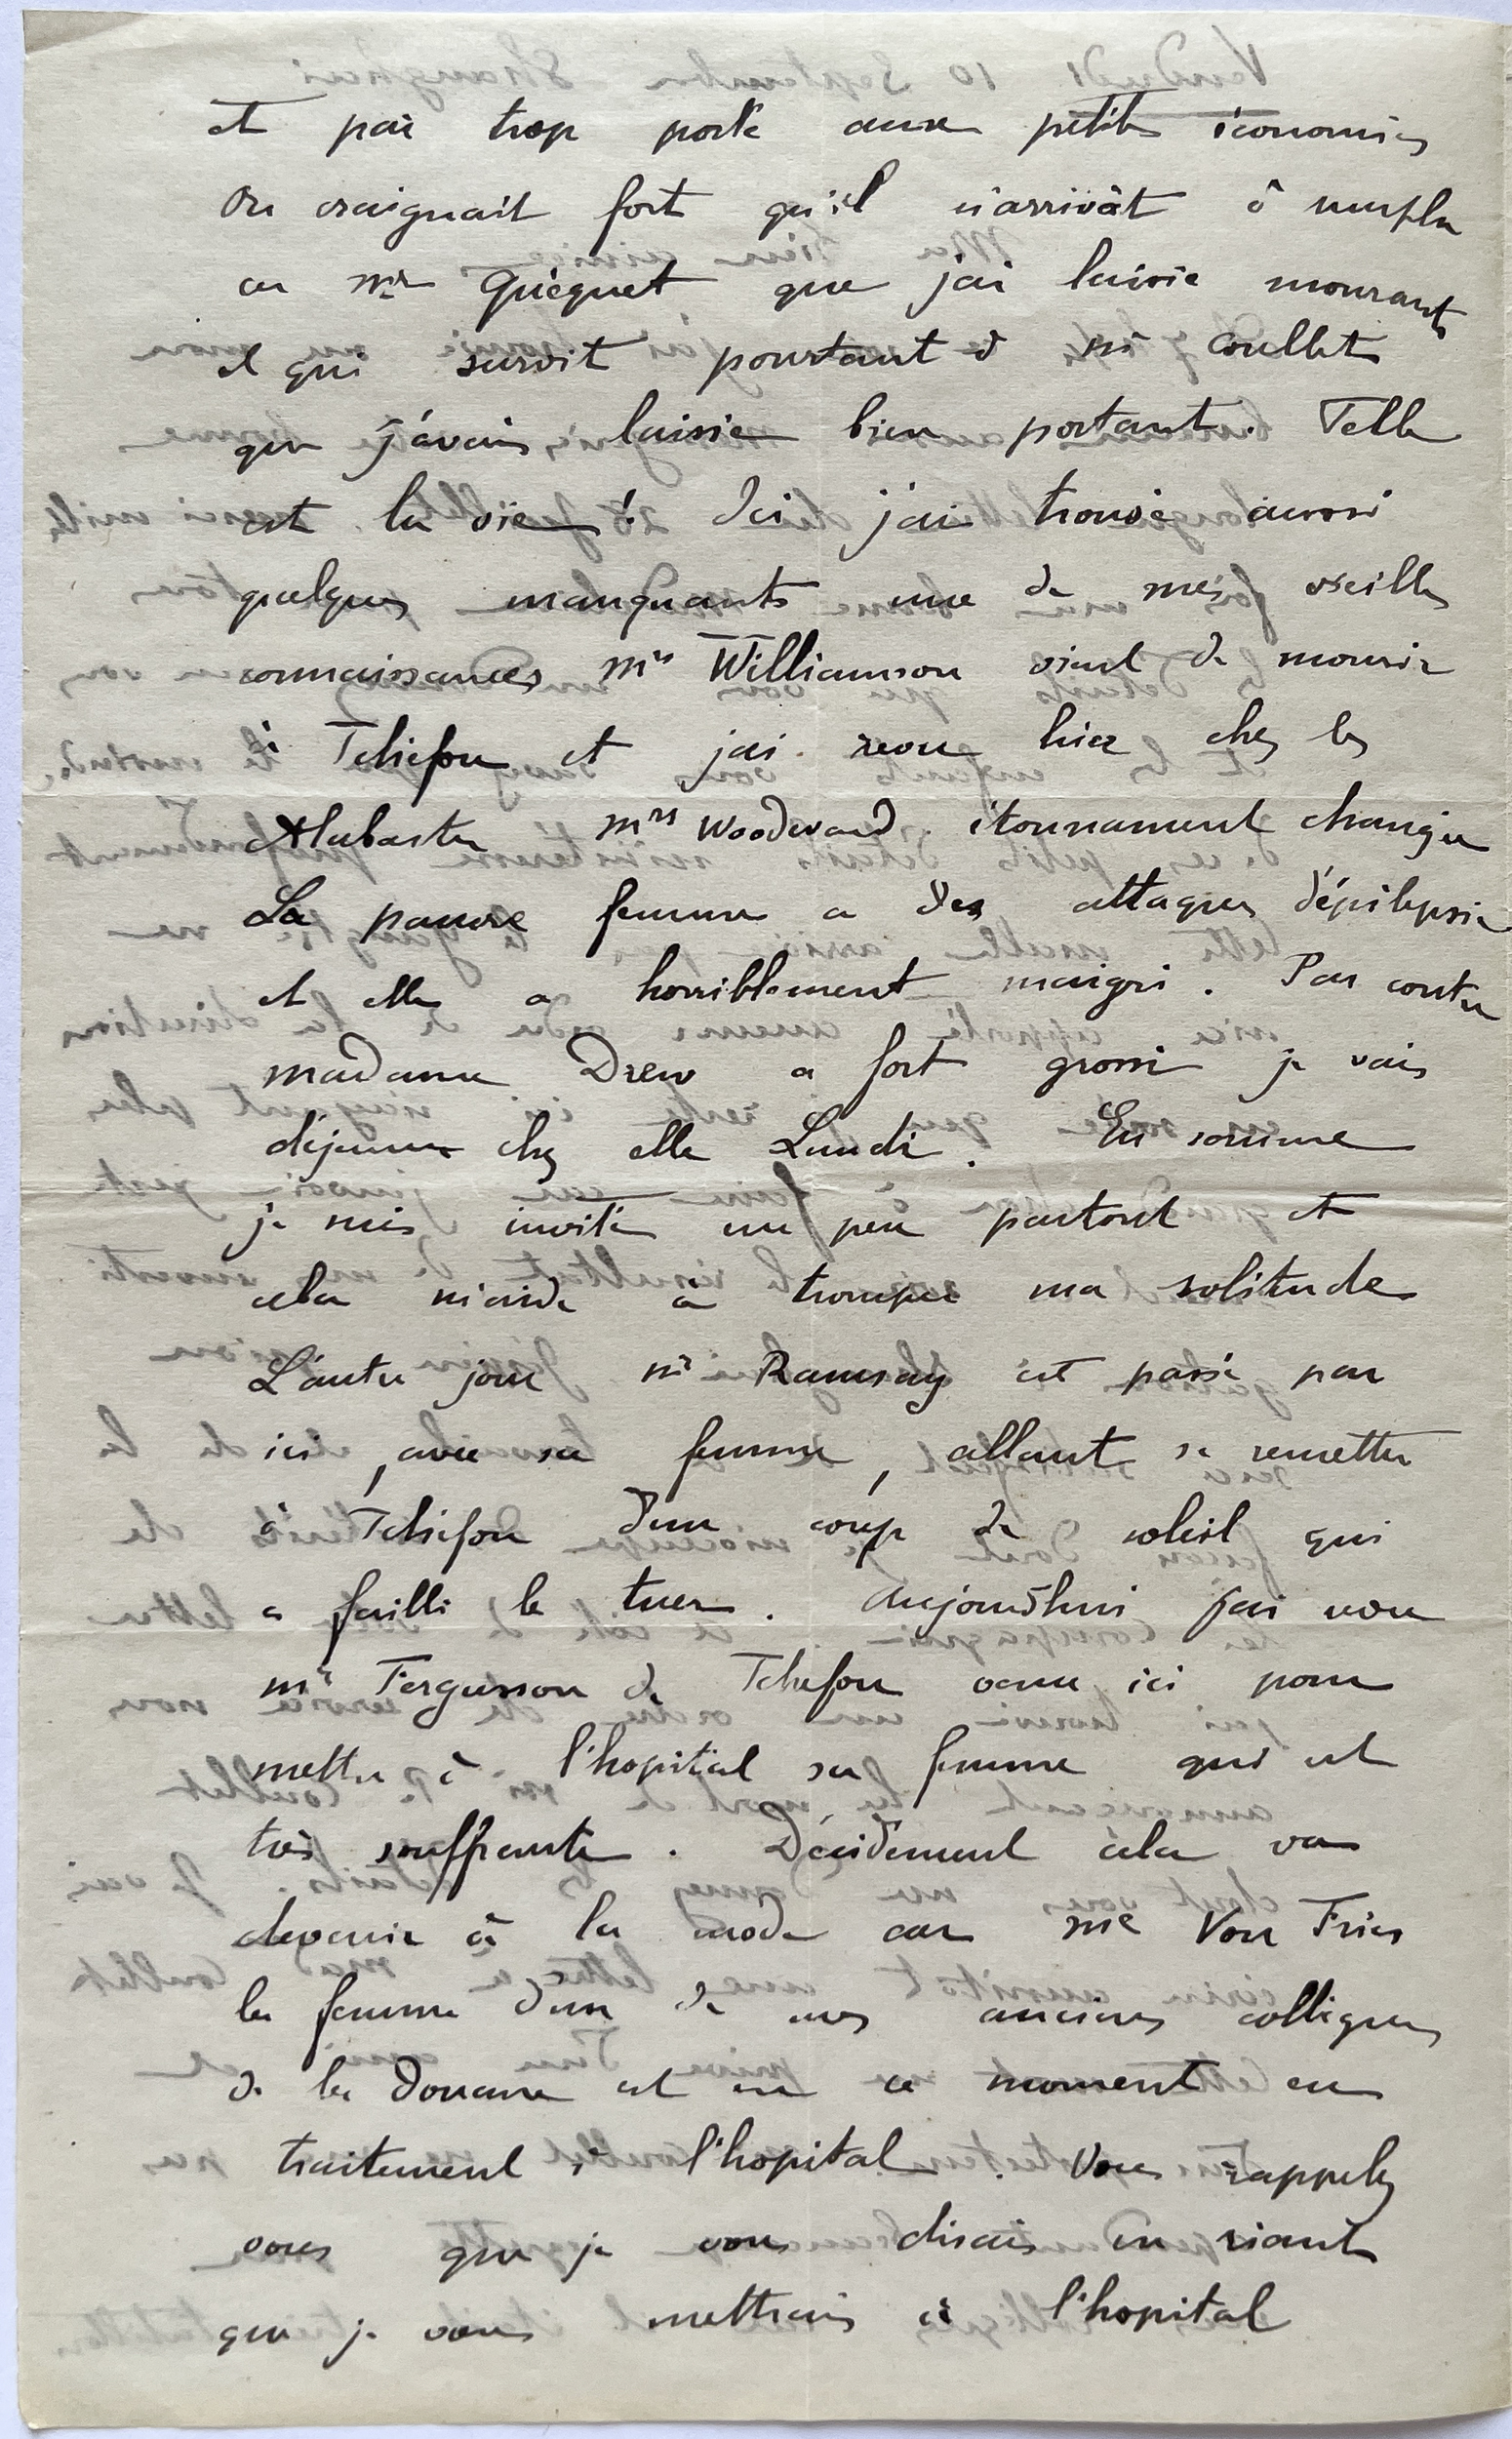 et par trop porté aux petites économies
On craignait fort qu'il n'arrivât à
ce Mr Guéquet que j'ai laissé mourant
et qui survit pourtant à Mr Coullet
que j'avais laissé bien portant. Telle
est la vie ! Ici j'ai trouvé aussi
quelques manquants une de mes vieilles
connaissances Mrs Williamson vient de mourir
à Tchefou et j'ai revu hier chez les
Alabaster Mrs Woodward étonnament changée
La pauvre femme a des attaques d'épilepsie
et elle a horriblement maigri. Par contre
madame Drew a fort grossi je vais
déjeuner chez elle Lundi. En somme
je suis invité un peu partout et
cela m'aide à tromper ma solitude
L'autre jour Mr Ramsay est passé par
ici, avec sa femme, allant se remettre
à Tchefou d'un coup de soleil qui
a failli le tuer. Aujourd'hui j'ai vu
Mr Fergusson de Tchefou venu ici pour
mettre à l'hopital sa femme qui est
très souffrante. Décidement cela va
devenir à la mode car Me Von Fries
la femme d'un de mes anciens collègues
de la Douane est en ce moment en
traitement à l'hopital. Vous rappelez
vous que je vous disais en riant
que je vous mettrais à l'hopital